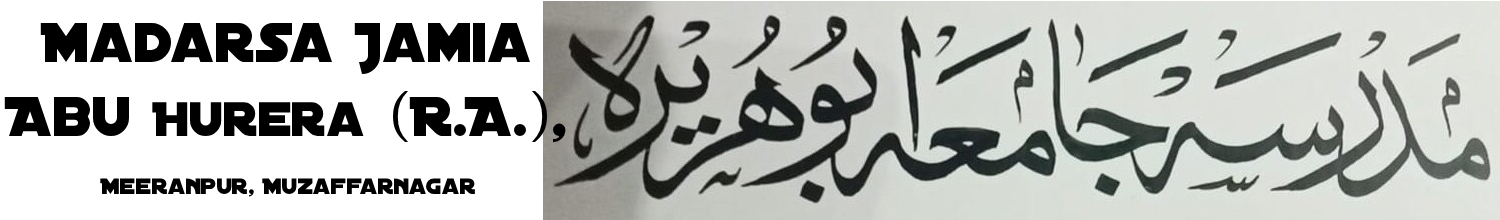 MADARSA JAMIA
ABU HURERA (R.A.),
MEERANPUR, MUZAFFARNAGAR
مدرسہ جامعہ ابوھریرہ